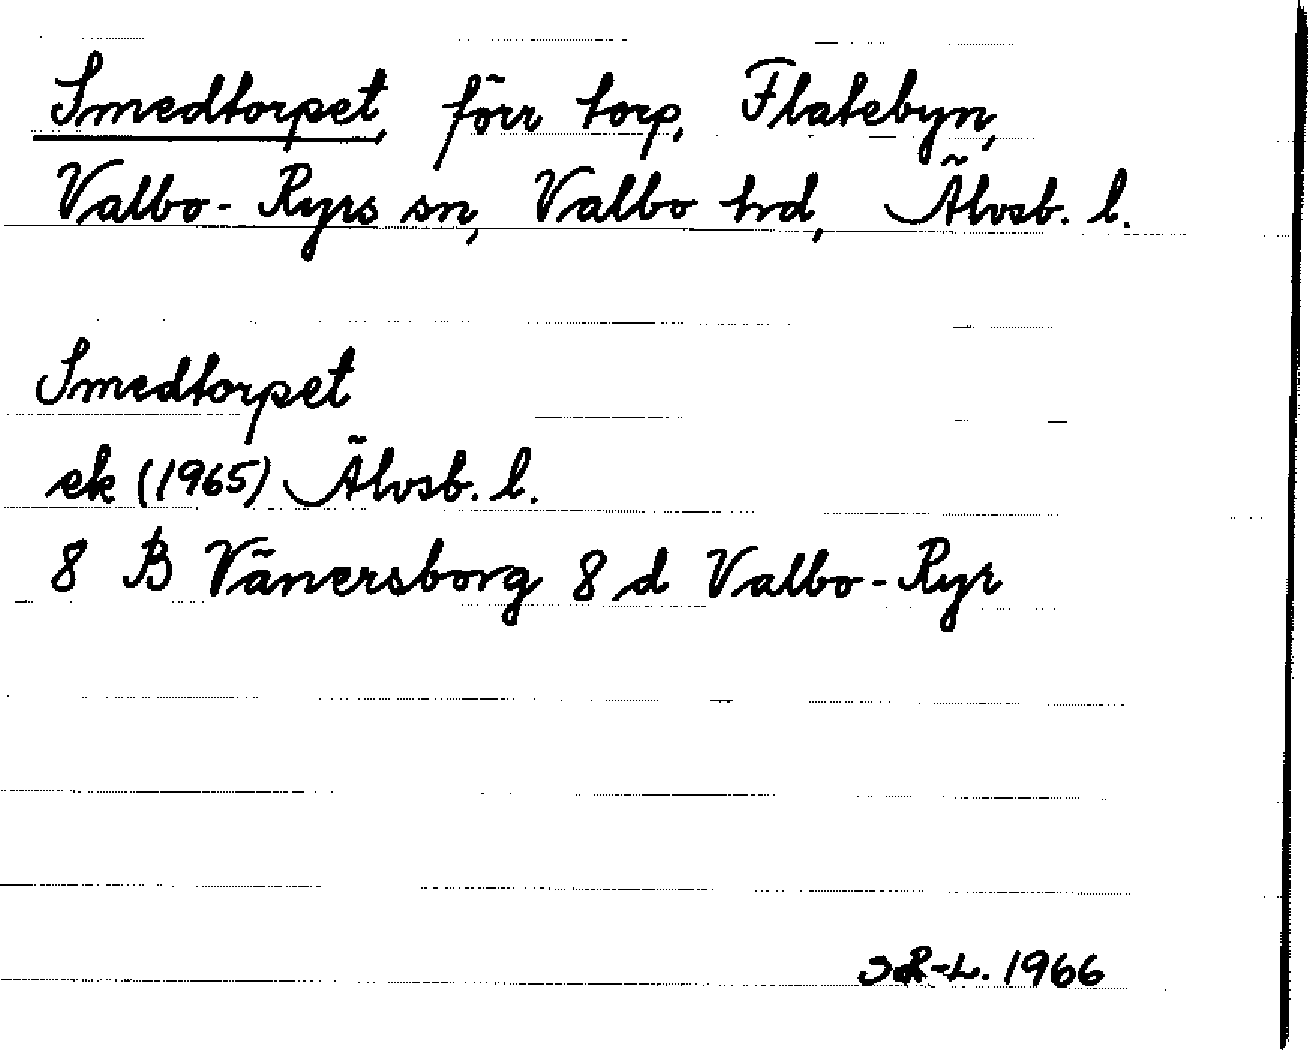 Smedtorpet, förr torp, Flatebyn,
Valbo-Ryrs sn, Valbo hd, Älvsb. l.
Smedtorpet
ek (1965) Älvsb. l.
8 B Vänersborg 8 d Valbo-Ryr
1966